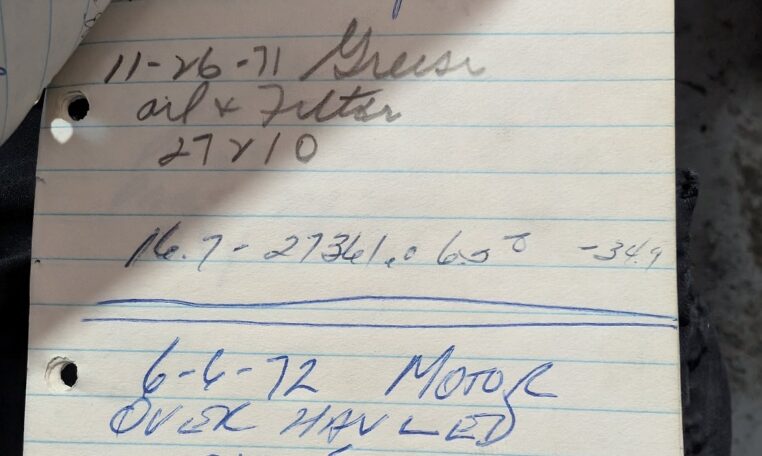 11-26-71 Grease
oil & Filter
27210
16.7 - 27361.0 6.50 -34.9
6-6-72 MOTOR
OVER HAULED